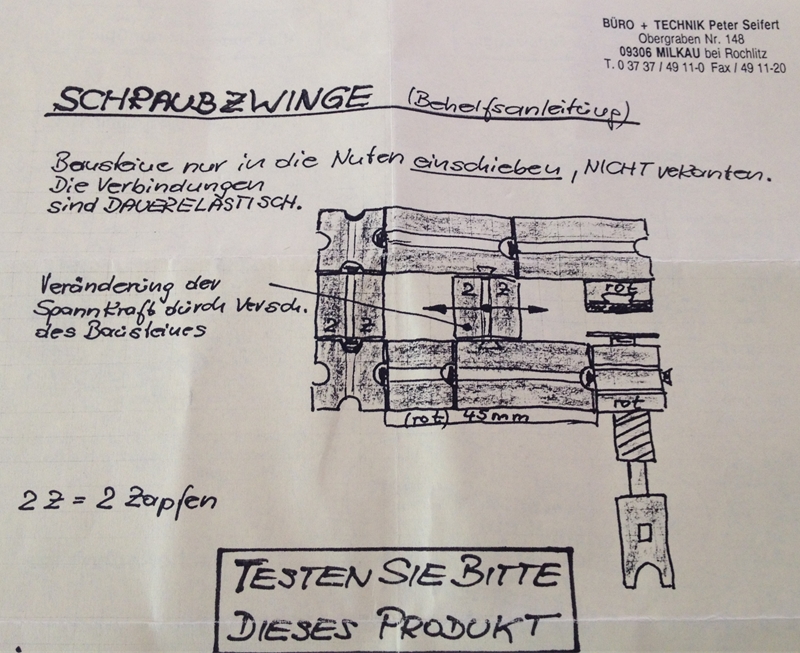 BÜRO + TECHNIK Peter Seifert
Obergraben Nr. 148
09306 MILKAU bei Rochlitz
T. 0 37 37 / 49 11-0 Fax / 49 11-20
SCHRAUBZWINGE (Behelfsanleitung)
Bausteine nur in die Nuten einschieben, NICHT verkanten.
Die Verbindungen
sind DAUERELASTISCH.
Veränderung der
Spannkraft durch Versch.
des Bausteines
2 Z
rot
2 Z
rot
(rot) 45mm
2 Z = 2 Zapfen
TESTEN SIE BITTE
DIESES PRODUKT